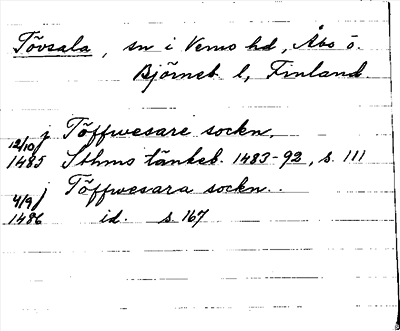 Tövsala, sn i Vemo hd, Åbo o.
Björneb. l, Finland.
12/10 j Töffwesare sockn,
1485 Sthms tänkeb. 1483-92, s. 111
4/9 j Töffwesara sockn..
1486 id. s. 167